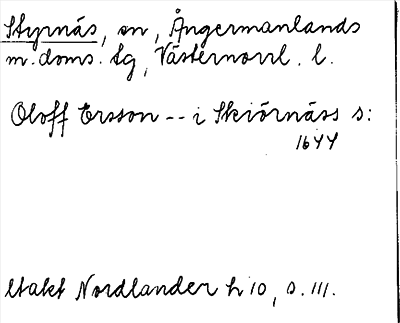 Styrnäs, sn, Ångermanlands
m. doms. sg, Västernorrl. l.
Oloff Ersson -- i Skiörnäss s:
1644
Utakt Nordlander h 10, s. 111.